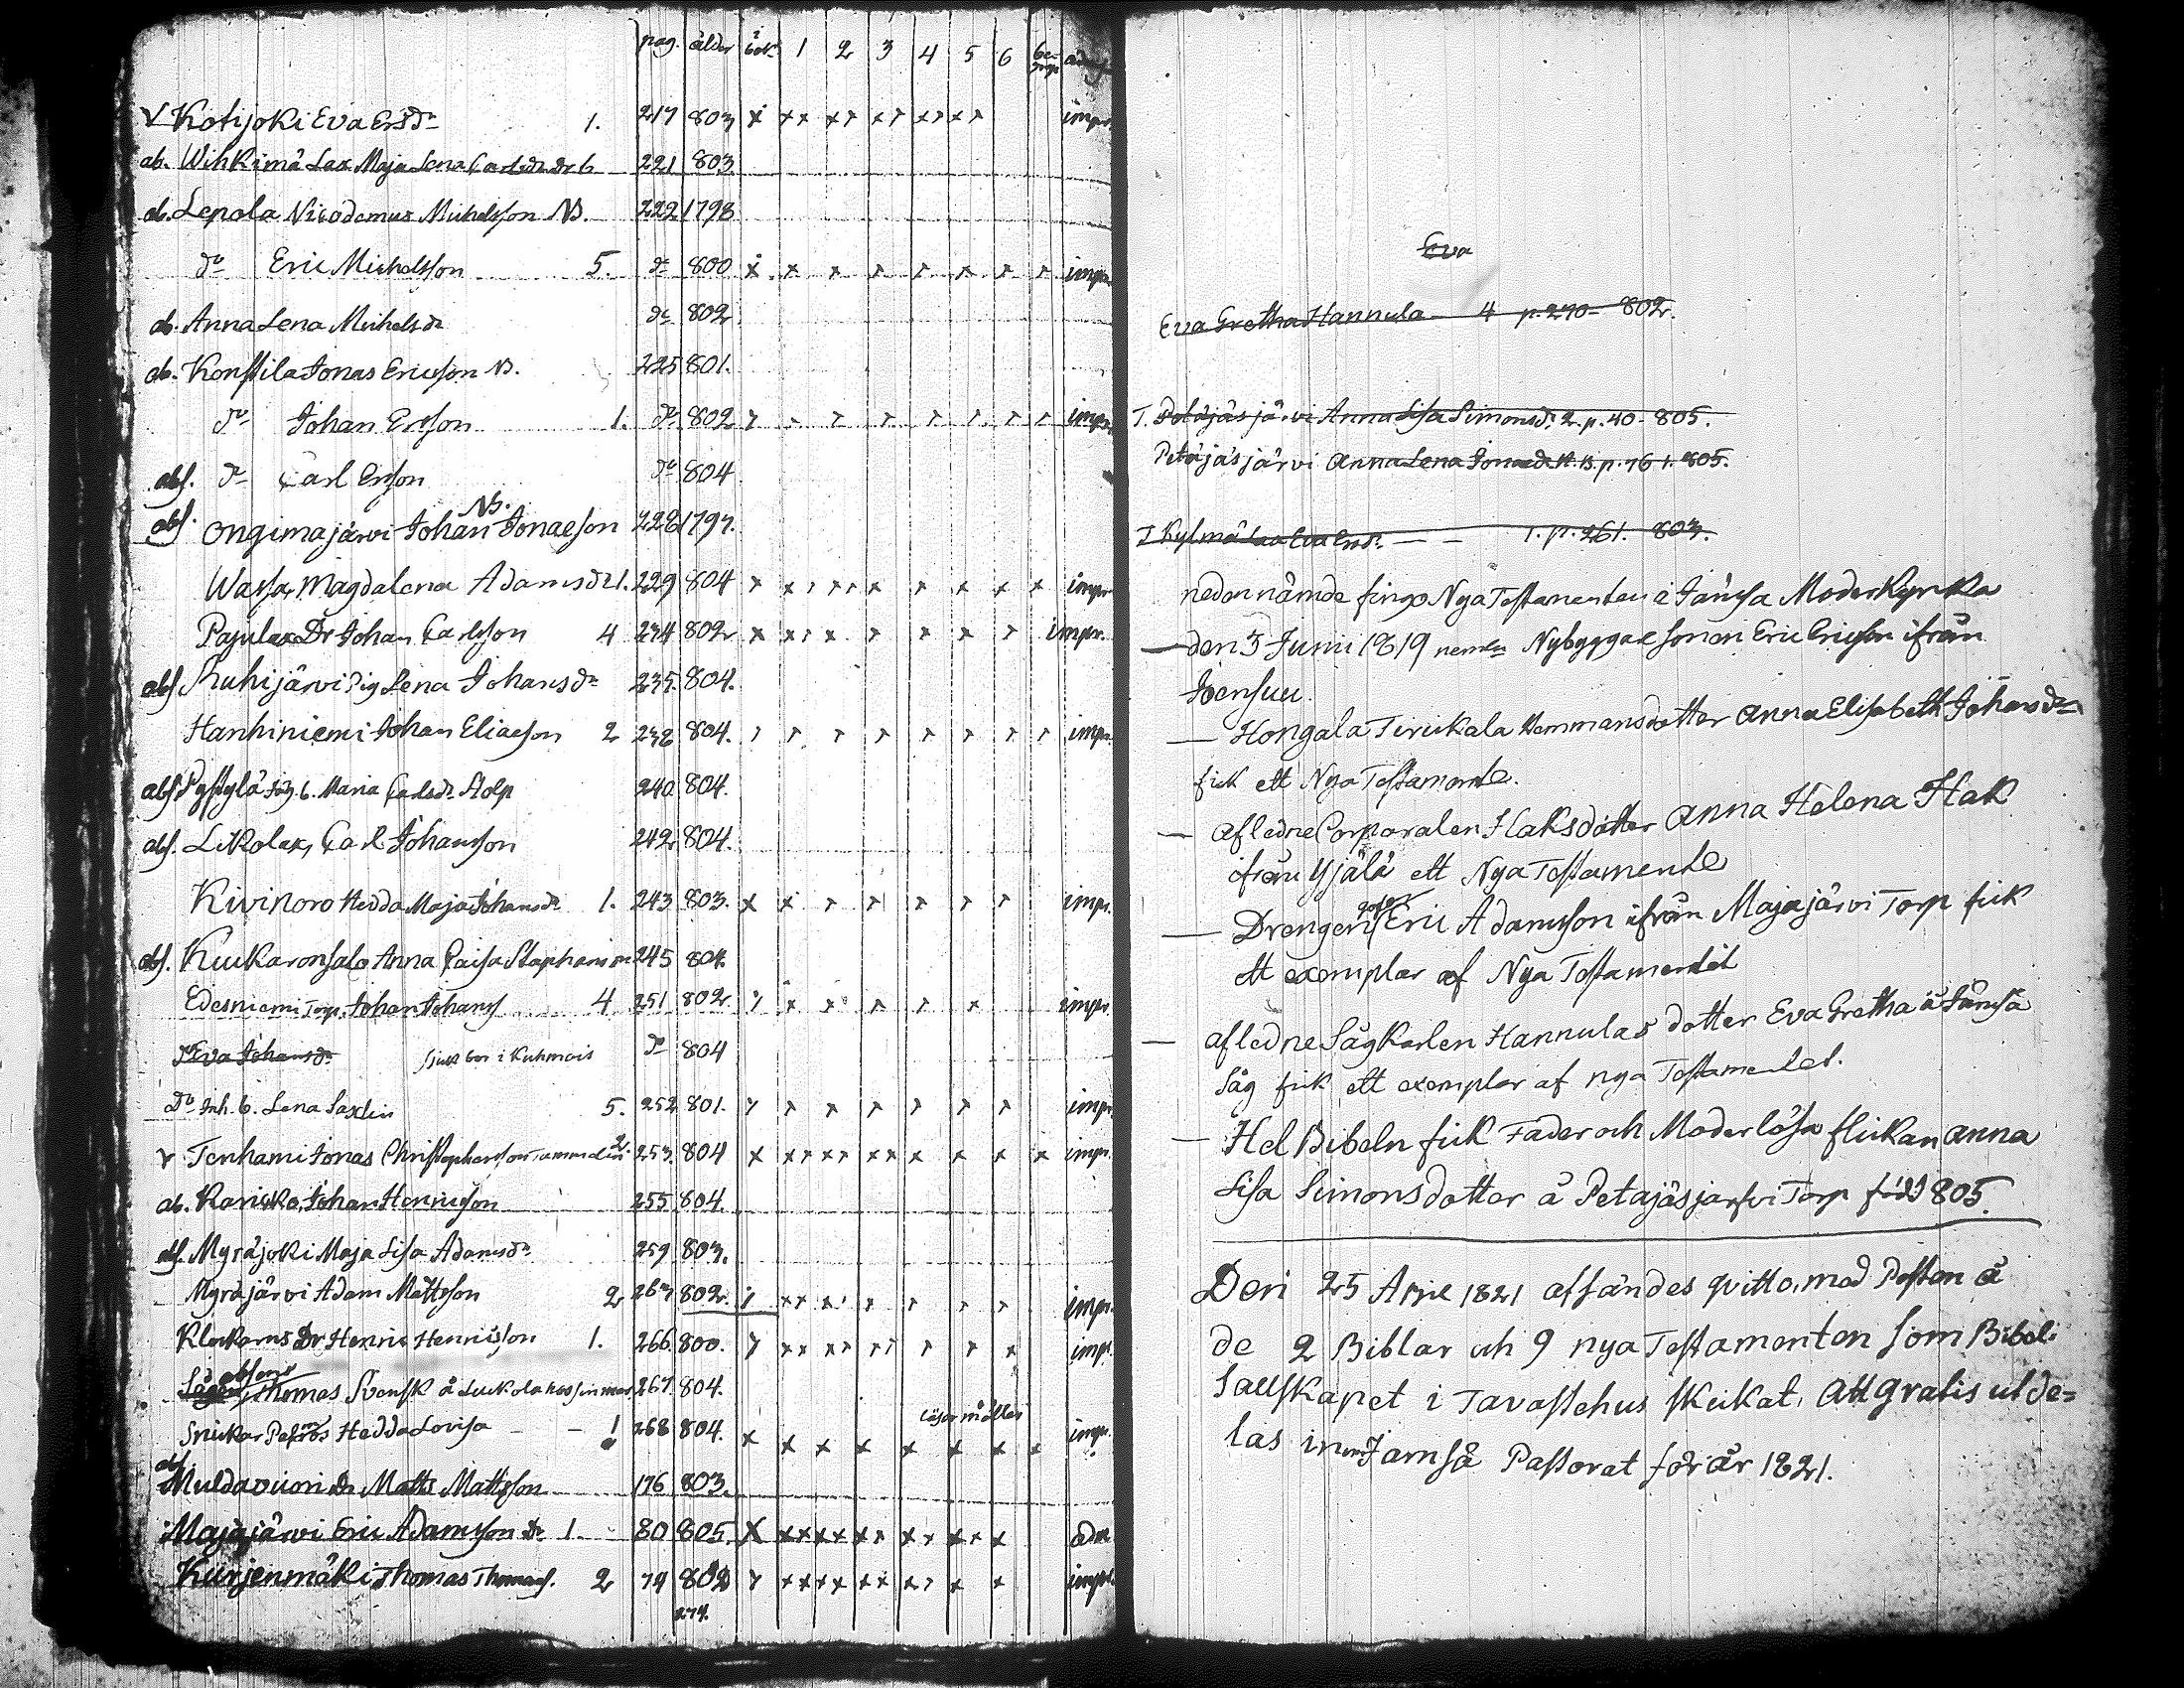 pag. ålder i bok 1 2 3 4 5 6 be-grep
v Kotijoki Eva Ersdr 1. 217 803 x xx xx xx xx xx impr.
ab. Wihkimä Lax Maja Lena Carlsdr dr 6 221 803.
ab. Lepola Nicodemus Michelsson NB. 222 1798
do Eric Michelsson 5. do 800 x x x x x x x x impr.
ab. Anna Lena Michelsdr do 802
ab. Konstila Jonas Ericsson NB. 225 801.
do Johan Ersson 1. do 802 x x x x x x x x impr.
abs. do Carl Ersson do 804
NB.
abs. Ongimajärvi Johan Jonaeson 228 1797.
Wassa, Magdalena Adamsdr 1. 229 804 x xx xx x x x x x impr.
Pajulax Dr Johan Carlsson 4 234 802 x xx x x x x x impr.
abs Ruhijärvi Pig Lena Johansdr 235. 804.
Hanhiniemi Johan Eliaeson 2 238 804. x x x x x x x x impr.
abs Pystylä Maria Carlsdr Stolp 240. 804.
abs. Likolax, Carl Johansson 242 804.
Kivinoro Hedda Maja Johansdr 1. 243 803. x x x x x x x impr.
abs. Kuukaronsalo Anna Caisa Staphansdr 245 804.
Edesniemi Torp. Johan Johanss 4 251 802. x x x x x x impr.
do Eva Johansdr sjuk bor i Kuhmois do 804
Do Inh. b. Lena Saxlin 5. 252 801. x x x x x x x impr.
v Tenhami Jonas Christophersson 2. 253. 804 x xx xx xx x x x x impr.
ab. Karicko, Johan Henricsson 255 804.
abs. Myräjoki Maja Lisa Adamsdr 259 803.
Myräjärvi Adam Mattsson 2 263 802. x xx x x x x x impr.
Klockarns Dr Henric Henricsson 1. 266. 800. x xx xx xx x x x impr.
absens
Thomas Svensk å 267. 804.
läser måttel.
Snickar Petrs Hedda Lovisa 1 268 804. x x x x x x x x impr.
abs
Muldavuori Dr Matts Mattsson 176 803.
Majajärvi Eric Adamsson Dr 1. 80 805. x xx xx xx xx xx x adm.
Kurjenmäki Thomas Thomass. 2 74 802 x xx xx xx xx x x impr.
274.
Eva
Eva Gretha Hannula 4 p. 270 802.
T. Petäjäsjärvi Anna Lisa Simonsdr 2. p. 40 - 805.
Petäjäsjärvi Anna Lena Jonaedr NB. p. 76 1. 805.
T Kylmä Eva Ersdr — — 1. p. 261. 803.
nedannämde fingo Nya Testamenten i Jämsä Moderkyrka
— den 3 Junii 1819 nemln Nybyggare sonen Eric Ericson ifrån
Joensuu.
— Hongala Tirickala Hemmansdotter Anna Elisabeth Johansdr
fick ett Nya Testamente.
— afledne Corporalen Haksdotter Anna Helena Hak
ifrån Yjälä ett Nya Testamente
— Drengen Eric Adamsson ifrån Majajärvi Torp fick
ett exemplar af Nya Testamentet
— afledne Sågkarlen Hannulas dotter Eva Gretha å Jämsä
såg fick ett exemplar af nya Testamentet.
— Hel Bibeln fick Fader och Moderlösa flickan Anna
Lisa Simonsdotter å Petajäsjärfvi Torp född 805.
Den 25 April 1821 afsändes qvitto, med Posten å
de 2 Biblar och 9 nya Testamenten som Bibel-
Sällskapet i Tavastehus skickat, att gratis utde=
las inom Jämsä Pastorat för år 1821.